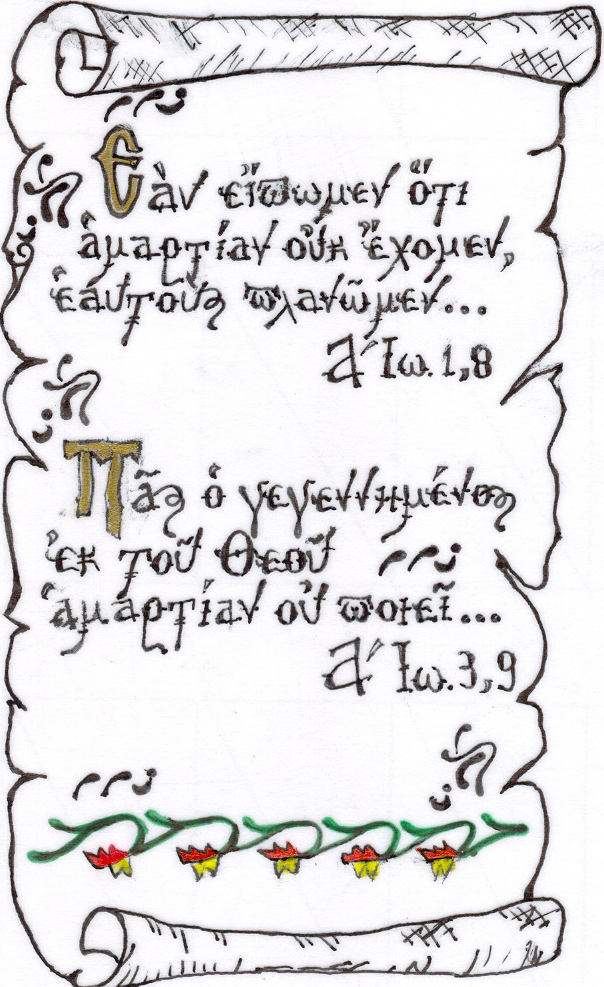 Ἐὰν εἴπωμεν ὅτι
ἁμαρτίαν οὐκ ἔχομεν,
ἑαυτοὺς πλανῶμεν...
Α΄ Ἰω. 1,8
Πᾶς ὁ γεγεννημένος
ἐκ τοῦ Θεοῦ
ἁμαρτίαν οὐ ποιεῖ...
Α΄ Ἰω. 3,9